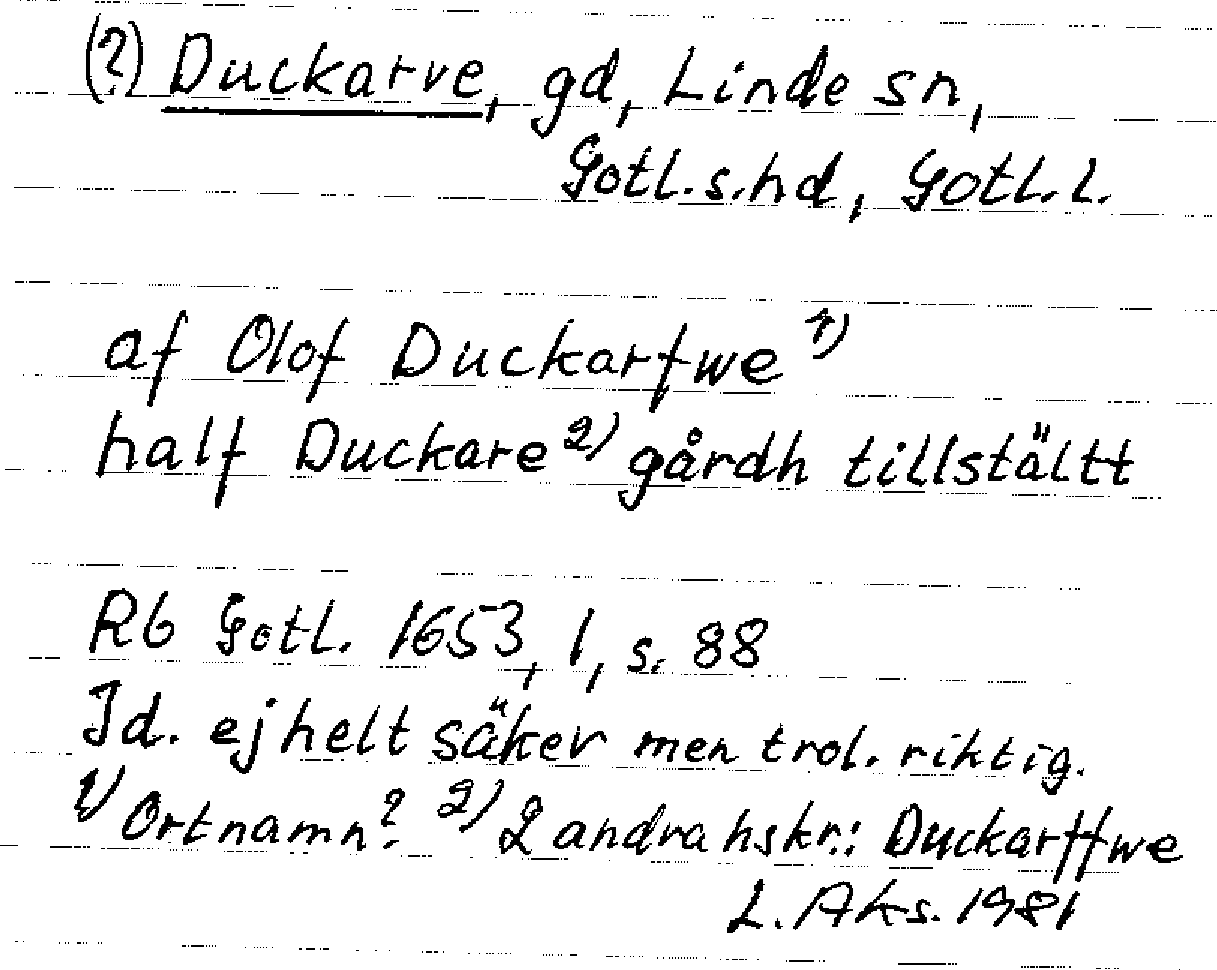 (?) Duckarve, gd, Linde sn,
Gotl.s.hd, Gotl.l.
af Olof Duckarfwe 1)
half Duckare 2) gårdh tillstältt
Rb Gotl. 1653, 1, s. 88
Id. ej helt säker men trol. riktig.
1) Ortnamn? 2) 2 andra hskr.: Duckarffwe
L. Aks. 1981